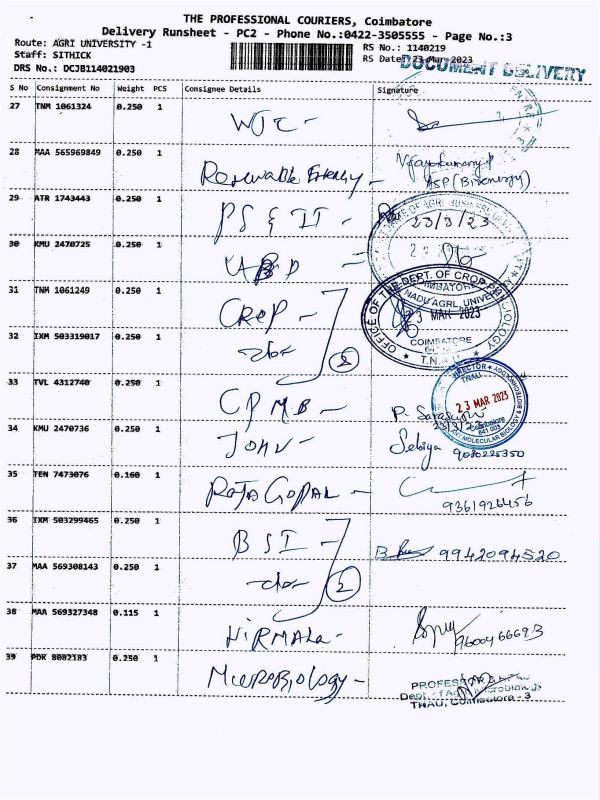 THE PROFESSIONAL COURIERS, Coimbatore
Delivery Runsheet - PC2 - Phone No.:0422-3505555 - Page No.:3
Route: AGRI UNIVERSITY -1
RS No.: 1140219
Staff: SITHICK
RS Date: 23-Mar-2023
DRS No.: DCJB114021903
DOCUMENT DELIVERY
S No Consignment No Weight PCS Consignee Details Signature
27 TNM 1061324 0.250 1
WTC -
28 MAA 565969849 0.250 1
Renewable Energy -
ASP (Bioenergy)
29 ATR 1743443 0.250 1
PS & IT -
23/3/23
30 KMU 2470725 0.250 1
31 TNM 1061249 0.250 1
CROP -
OFFICE OF THE DEPT. OF CROP PHYSIOLOGY
NADU AGRL. UNIVERSITY
23 MAR 2023
COIMBATORE
T.N.A.U
32 IXM 503319017 0.250 1
-do-
2
33 TVL 4312740 0.250 1
CPMB -
DIRECTOR
TNAU
23 MAR 2023
641 003
34 KMU 2470736 0.250 1
Sebiya 9080225350
35 TEN 7473076 0.160 1
RAJA GOPAL -
9361926456
36 IXM 503299465 0.250 1
BSI -
9942094520
37 MAA 569308143 0.250 1
-do-
2
38 MAA 569327348 0.115 1
NIRMALA -
9600466693
39 PDK 8082183 0.250 1
Microbiology -
TNAU, Coimbatore - 3